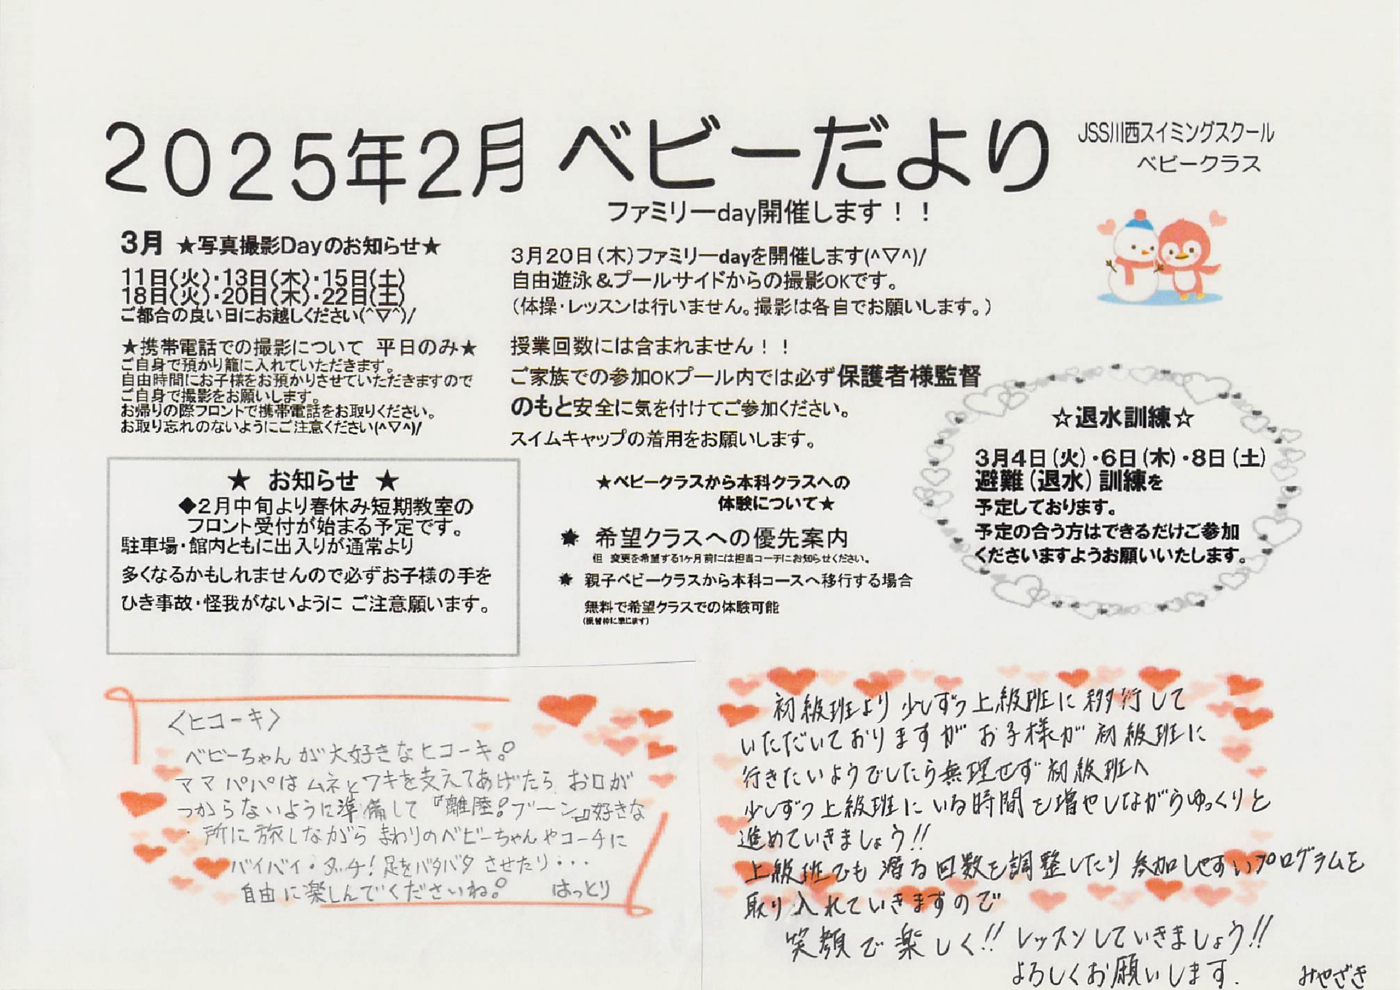 2025年2月 ベビーだより
JSS川西スイミングスクール
ベビークラス
ファミリーday開催します！！
3月 ★写真撮影Dayのお知らせ★
11日(火)・13日(木)・15日(土)
18日(火)・20日(木)・22日(土)
ご都合の良い日にお越しください(^▽^)/
★携帯電話での撮影について 平日のみ★
ご自身で預かり籠に入れていただきます。
自由時間にお子様をお預かりさせていただきますので
ご自身で撮影をお願いします。
お帰りの際フロントで携帯電話をお取りください。
お取り忘れのないようにご注意ください(^▽^)/
★ お知らせ ★
◆2月中旬より春休み短期教室の
フロント受付が始まる予定です。
駐車場・館内ともに出入りが通常より
多くなるかもしれませんので必ずお子様の手を
ひき事故・怪我がないように ご注意願います。
3月20日(木)ファミリーdayを開催します(^▽^)/
自由遊泳＆プールサイドからの撮影OKです。
(体操・レッスンは行いません。撮影は各自でお願いします。)
授業回数には含まれません！！
ご家族での参加OKプール内では必ず保護者様監督
のもと安全に気を付けてご参加ください。
スイムキャップの着用をお願いします。
★ベビークラスから本科クラスへの
体験について★
★ 希望クラスへの優先案内
但 変更を希望する1ヶ月前には担当コーチにお知らせください。
★ 親子ベビークラスから本科コースへ移行する場合
無料で希望クラスでの体験可能
(振替枠に準じます)
☆退水訓練☆
3月4日(火)・6日(木)・8日(土)
避難(退水)訓練を
予定しております。
予定の合う方はできるだけご参加
くださいますようお願いいたします。
〈ヒコーキ〉
ベビーちゃんが大好きなヒコーキ！
ママパパはムネとワキを支えてあげたら お口が
つからないように準備して『離陸！ブーン』好きな
所に旅しながら まわりのベビーちゃんやコーチに
バイバイ・タッチ！足をバタバタ させたり・・・
自由に楽しんでくださいね！ はっとり
初級班より 少しずつ上級班に移行して
いただいておりますが お子様が初級班に
行きたいようでしたら無理せず初級班へ
少しずつ上級班にいる時間を増やしながらゆっくりと
進めていきましょう!!
上級班でも 潜る回数を調整したり 参加しやすいプログラムを
取り入れていきますので
笑顔で楽しく!! レッスンしていきましょう!!
よろしくお願いします. みやざき